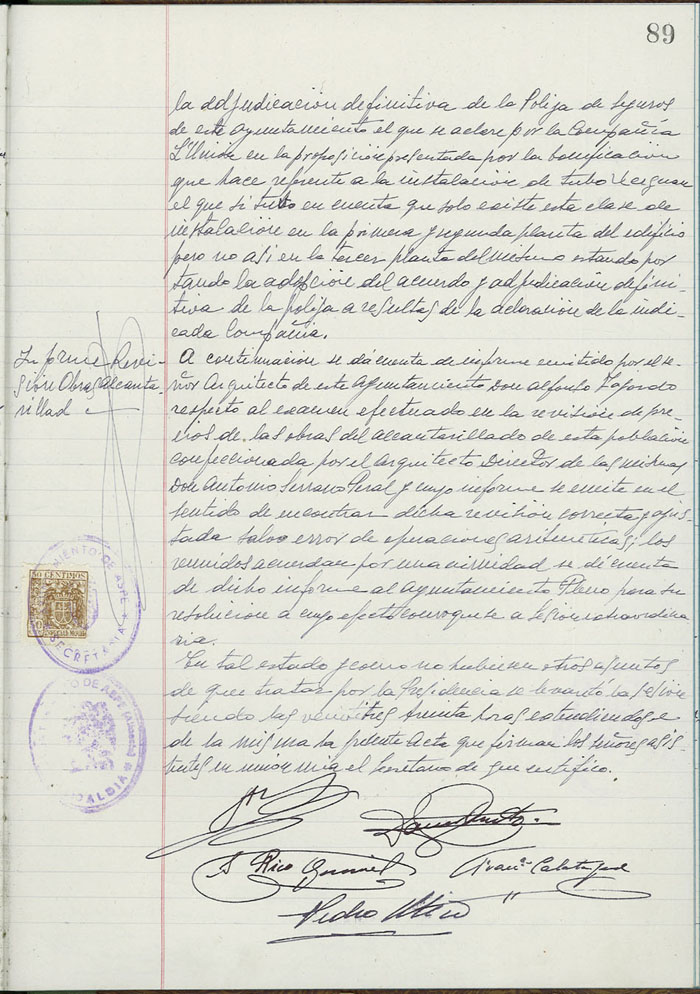 89
la adjudicación definitiva de la Poliza de Seguros
de este Ayuntamiento el que se aclare por la Compañía
L'Unión en la proposición presentada por la bonificación
que hace referente a la instalación de tubo Bergman
el que si tubo en cuenta que solo existe esta clase de
instalación en la primera y segunda planta del edificio
pero no asi en la tercer planta del mismo estando por
tando la adopción del acuerdo y adjudicación defini-
tiva de la poliza a resultas de la aclaración de la indi-
cada Compañía.
Informe Revi-
sión Obras Alcanta-
rillad
A continuación se dá cuenta de informe emitido por el se-
ñor Arquitecto de este Ayuntamiento Don Alfonso Fajardo
respecto al examen efectuado en la revisión de pre-
cios de las obras del alcantarillado de esta población
confeccionada por el Arquitecto Director de las mismas
Don Antonio Serrano Peral y cuyo informe se emite en el
sentido de encontrar dicha revisión correcta y ajus-
tada salvo error de operaciones aritméticas; los
reunidos acuerdan por unanimidad se dé cuenta
de dicho informe al Ayuntamiento Pleno para su
resolución a cuyo efecto convoquese a sesión extraordina
ria.
En tal estado y como no hubiesen otros asuntos
de que tratar por la Presidencia se levantó la sesión
siendo las veintitres treinta horas extendiendose
de la misma la presente Acta que firman los señores asis-
tentes en unión mía el Secretario de que certifico.
50 CENTIMOS
AYUNTAMIENTO DE ASPE
SECRETARIA
AYUNTAMIENTO DE ASPE (Alicante)
ALCALDIA
A Rico
Calatayud
Pedro